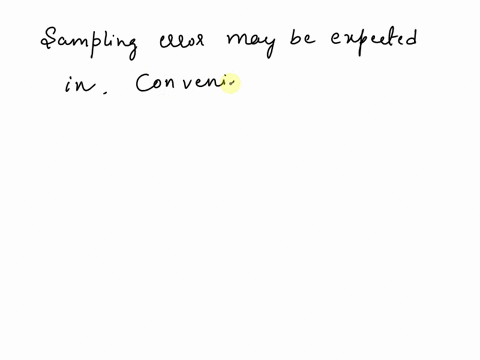 Sampling error may be expected
in. Conveni